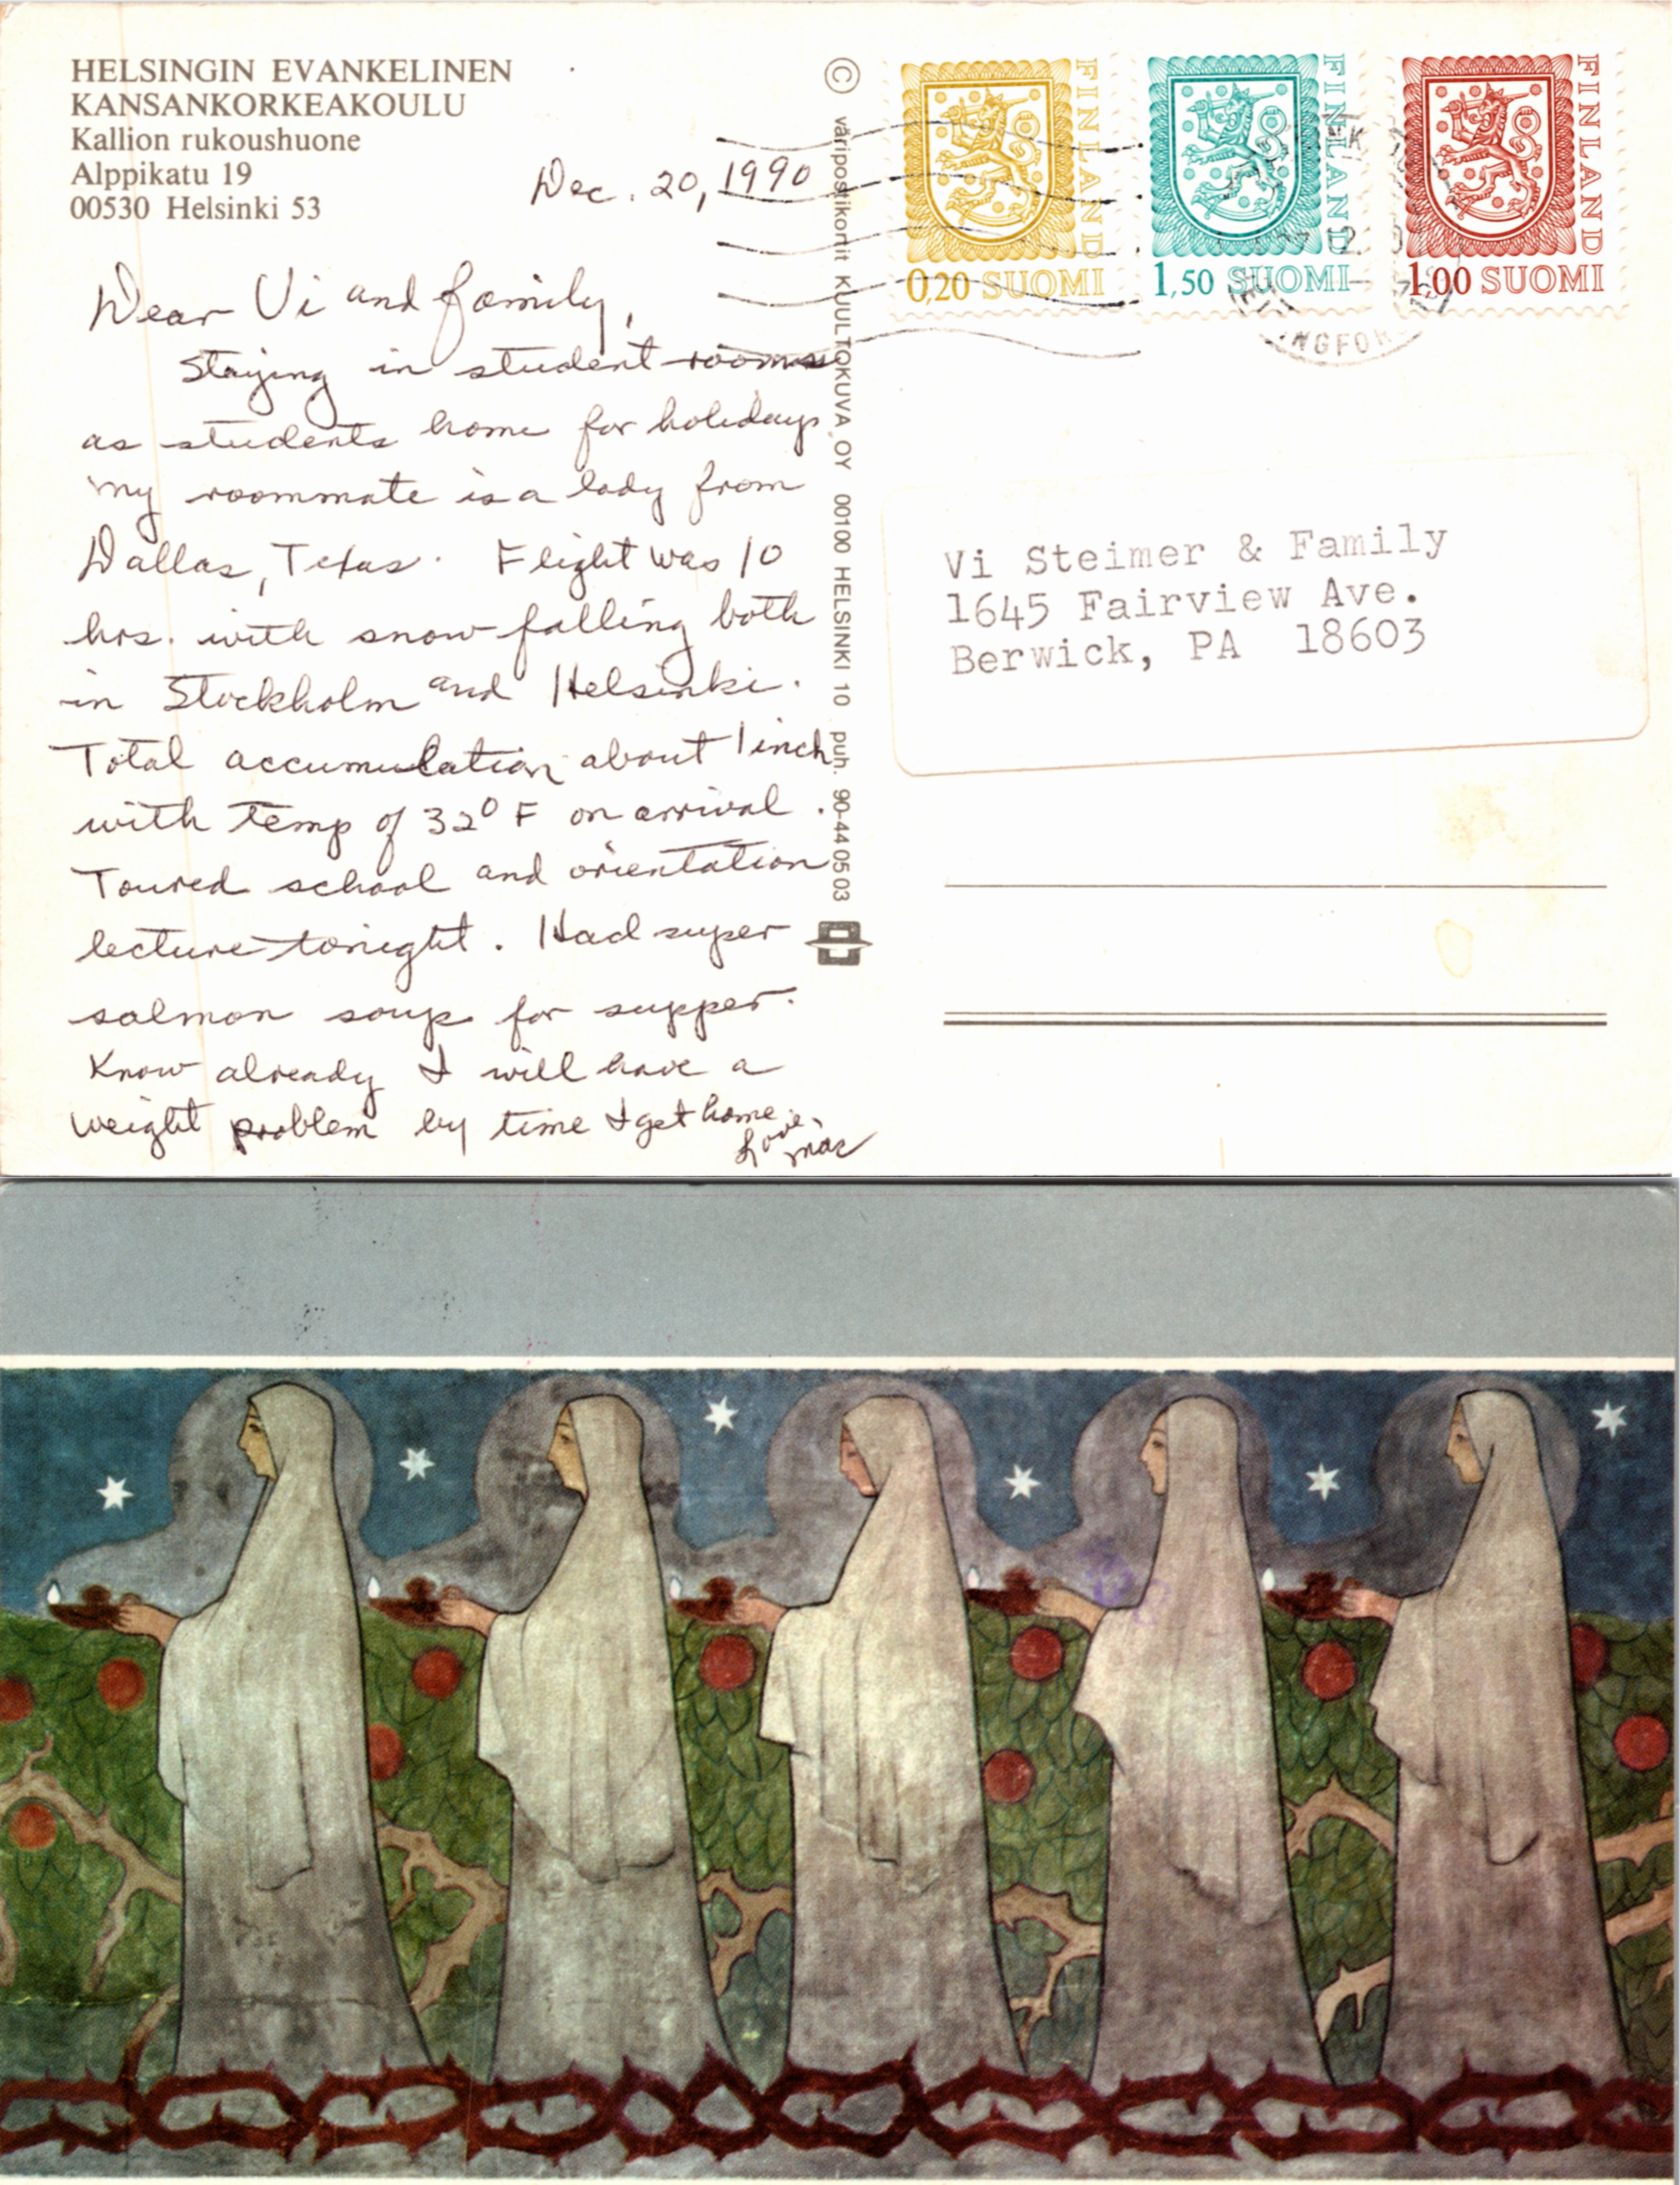 HELSINGIN EVANKELINEN
KANSANKORKEAKOULU
Kallion rukoushuone
Alppikatu 19
00530 Helsinki 53
Dec. 20, 1990
Dear Vi and family,
Staying in student rooms
as students home for holidays
my roommate is a lady from
Dallas, Texas. Flight was 10
hrs. with snow falling both
in Stockholm and Helsinki.
Total accumulation about 1 inch
with temp of 32° F on arrival.
Toured school and orientation
lecture tonight. Had super
salmon soup for supper.
Know already I will have a
weight problem by time I get home.
Love,
© väripostikortit KUULTOKUVA OY 00100 HELSINKI 10 puh. 90-44 05 03
FINLAND
0,20 SUOMI
FINLAND
1,50 SUOMI
FINLAND
1,00 SUOMI
Vi Steimer & Family
1645 Fairview Ave.
Berwick, PA 18603